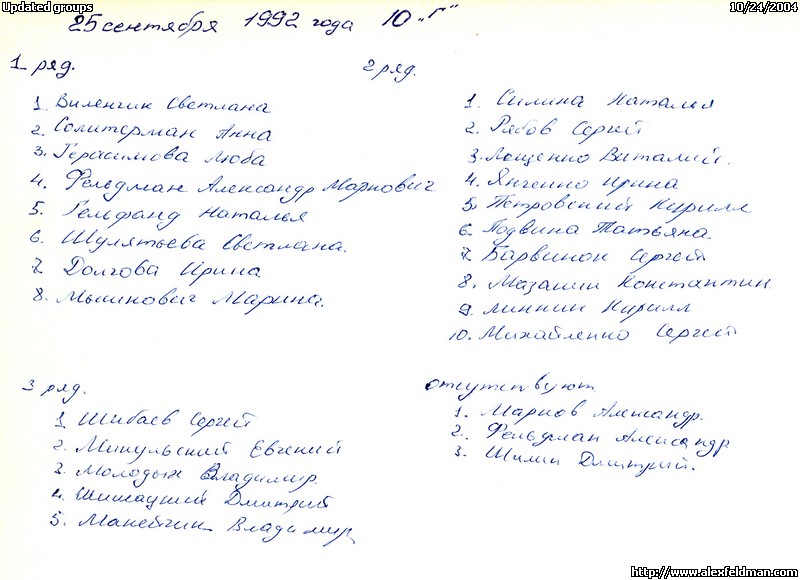 Updated groups
10/24/2004
25 сентября 1992 года 10 „Г"
1 ряд.
1. Виленчик Светлана
2. Солитерман Анна
3. Герасимова Люба
4. Фельдман Александр Маркович
5. Гельфанд Наталья
6. Шулятьева Светлана.
7. Долгова Ирина
8. Мышкович Марина.
2 ряд.
1. Силина Наталья
2. Рябов Сергей
3. Лощенко Виталий.
4. Янченко Ирина
5. Петровский Кирилл
6. Подвина Татьяна.
7. Барвинок Сергей
8. Мазалин Константин
9. Линник Кирилл
10. Михайленко Сергей
3 ряд.
1. Шибаев Сергей
2. Микульский Евгений
3. Молодых Владимир.
4. Дмитрий
5. Манейчик Владимир
отсутствуют
1. Марков Александр.
2. Фельдман Александр
3. Шилин Дмитрий.
http://www.alexfeldman.com